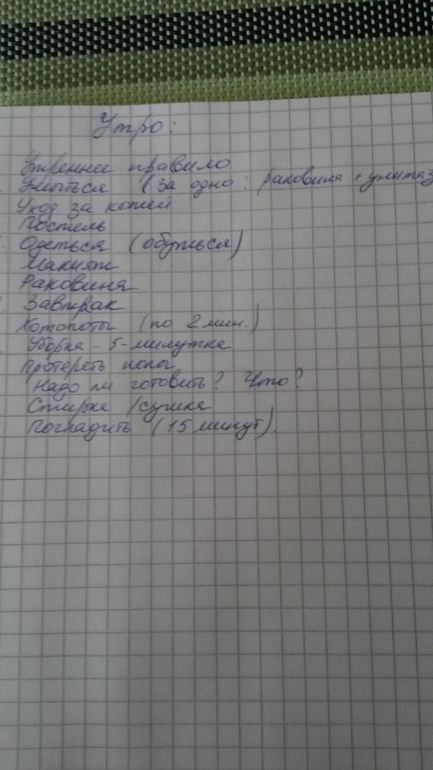 Утро:
Утреннее правило
Умыться (За одно: раковина + унитаз
Уход за кожей
Постель
Одеться (обуться)
Макияж
Раковина
Завтрак
(по 2 мин.)
Уборка - 5-минутка
Протереть полы
Надо ли готовить? Что?
Стирка / сушка
Погладить (15 минут).